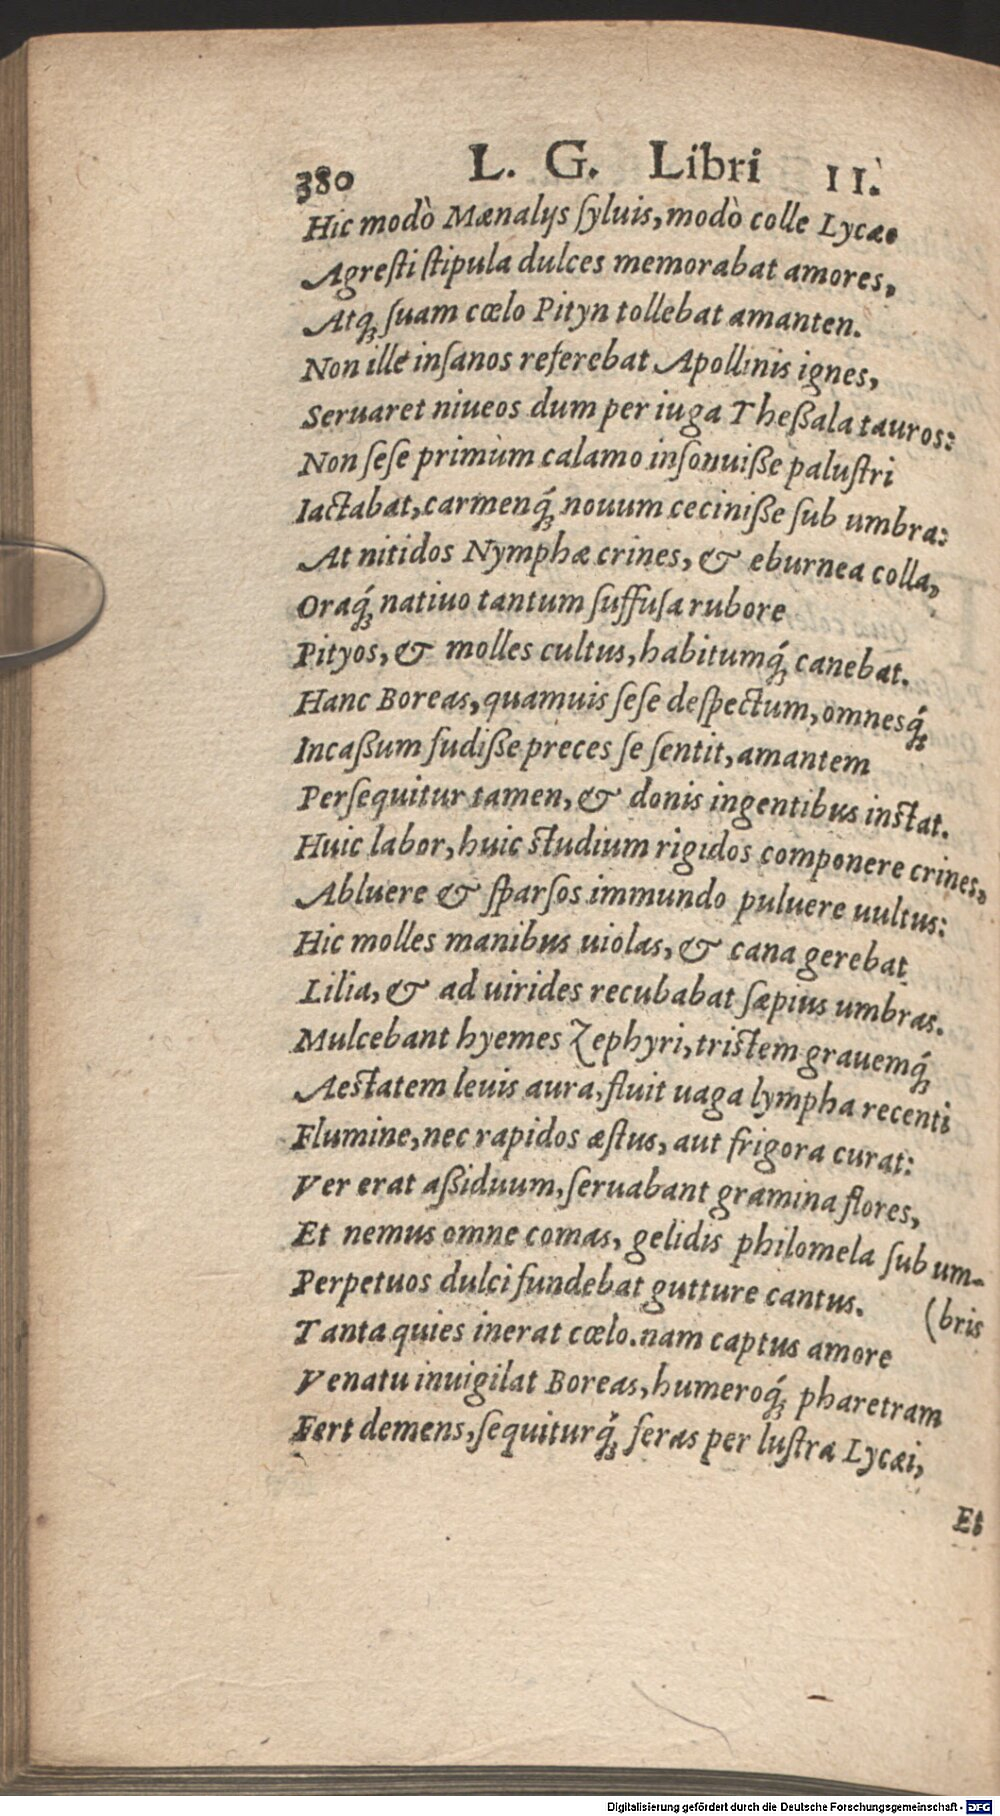 380 L. G. Libri II.
Hic modò Mænalijs syluis, modò colle Lycæo
Agresti stipula dulces memorabat amores,
Atq; suam cœlo Pityn tollebat amanten.
Non ille insanos referebat Apollinis ignes,
Seruaret niueos dum per iuga Theßala tauros:
Non sese primùm calamo insonuiße palustri
Iactabat, carmenq́; nouum ceciniße sub umbra:
At nitidos Nymphæ crines, & eburnea colla,
Oraq́; natiuo tantum suffusa rubore
Pityos, & molles cultus, habitumq́; canebat.
Hanc Boreas, quamuis sese despectum, omnesq́;
Incaßum fudiße preces se sentit, amantem
Persequitur tamen, & donis ingentibus instat.
Huic labor, huic studium rigidos componere crines,
Abluere & sparsos immundo puluere uultus:
Hic molles manibus uiolas, & cana gerebat
Lilia, & ad uirides recubabat sæpius umbras.
Mulcebant hyemes Zephyri, tristem grauemq́;
Aestatem leuis aura, fluit uaga lympha recenti
Flumine, nec rapidos æstus, aut frigora curat:
Ver erat aßiduum, seruabant gramina flores,
Et nemus omne comas, gelidis philomela sub um-
Perpetuos dulci fundebat gutture cantus. (bris
Tanta quies inerat cœlo. nam captus amore
Venatu inuigilat Boreas, humeroq́; pharetram
Fert demens, sequiturq́; feras per lustra Lycæi,
Et
Digitalisierung gefördert durch die Deutsche Forschungsgemeinschaft - DFG